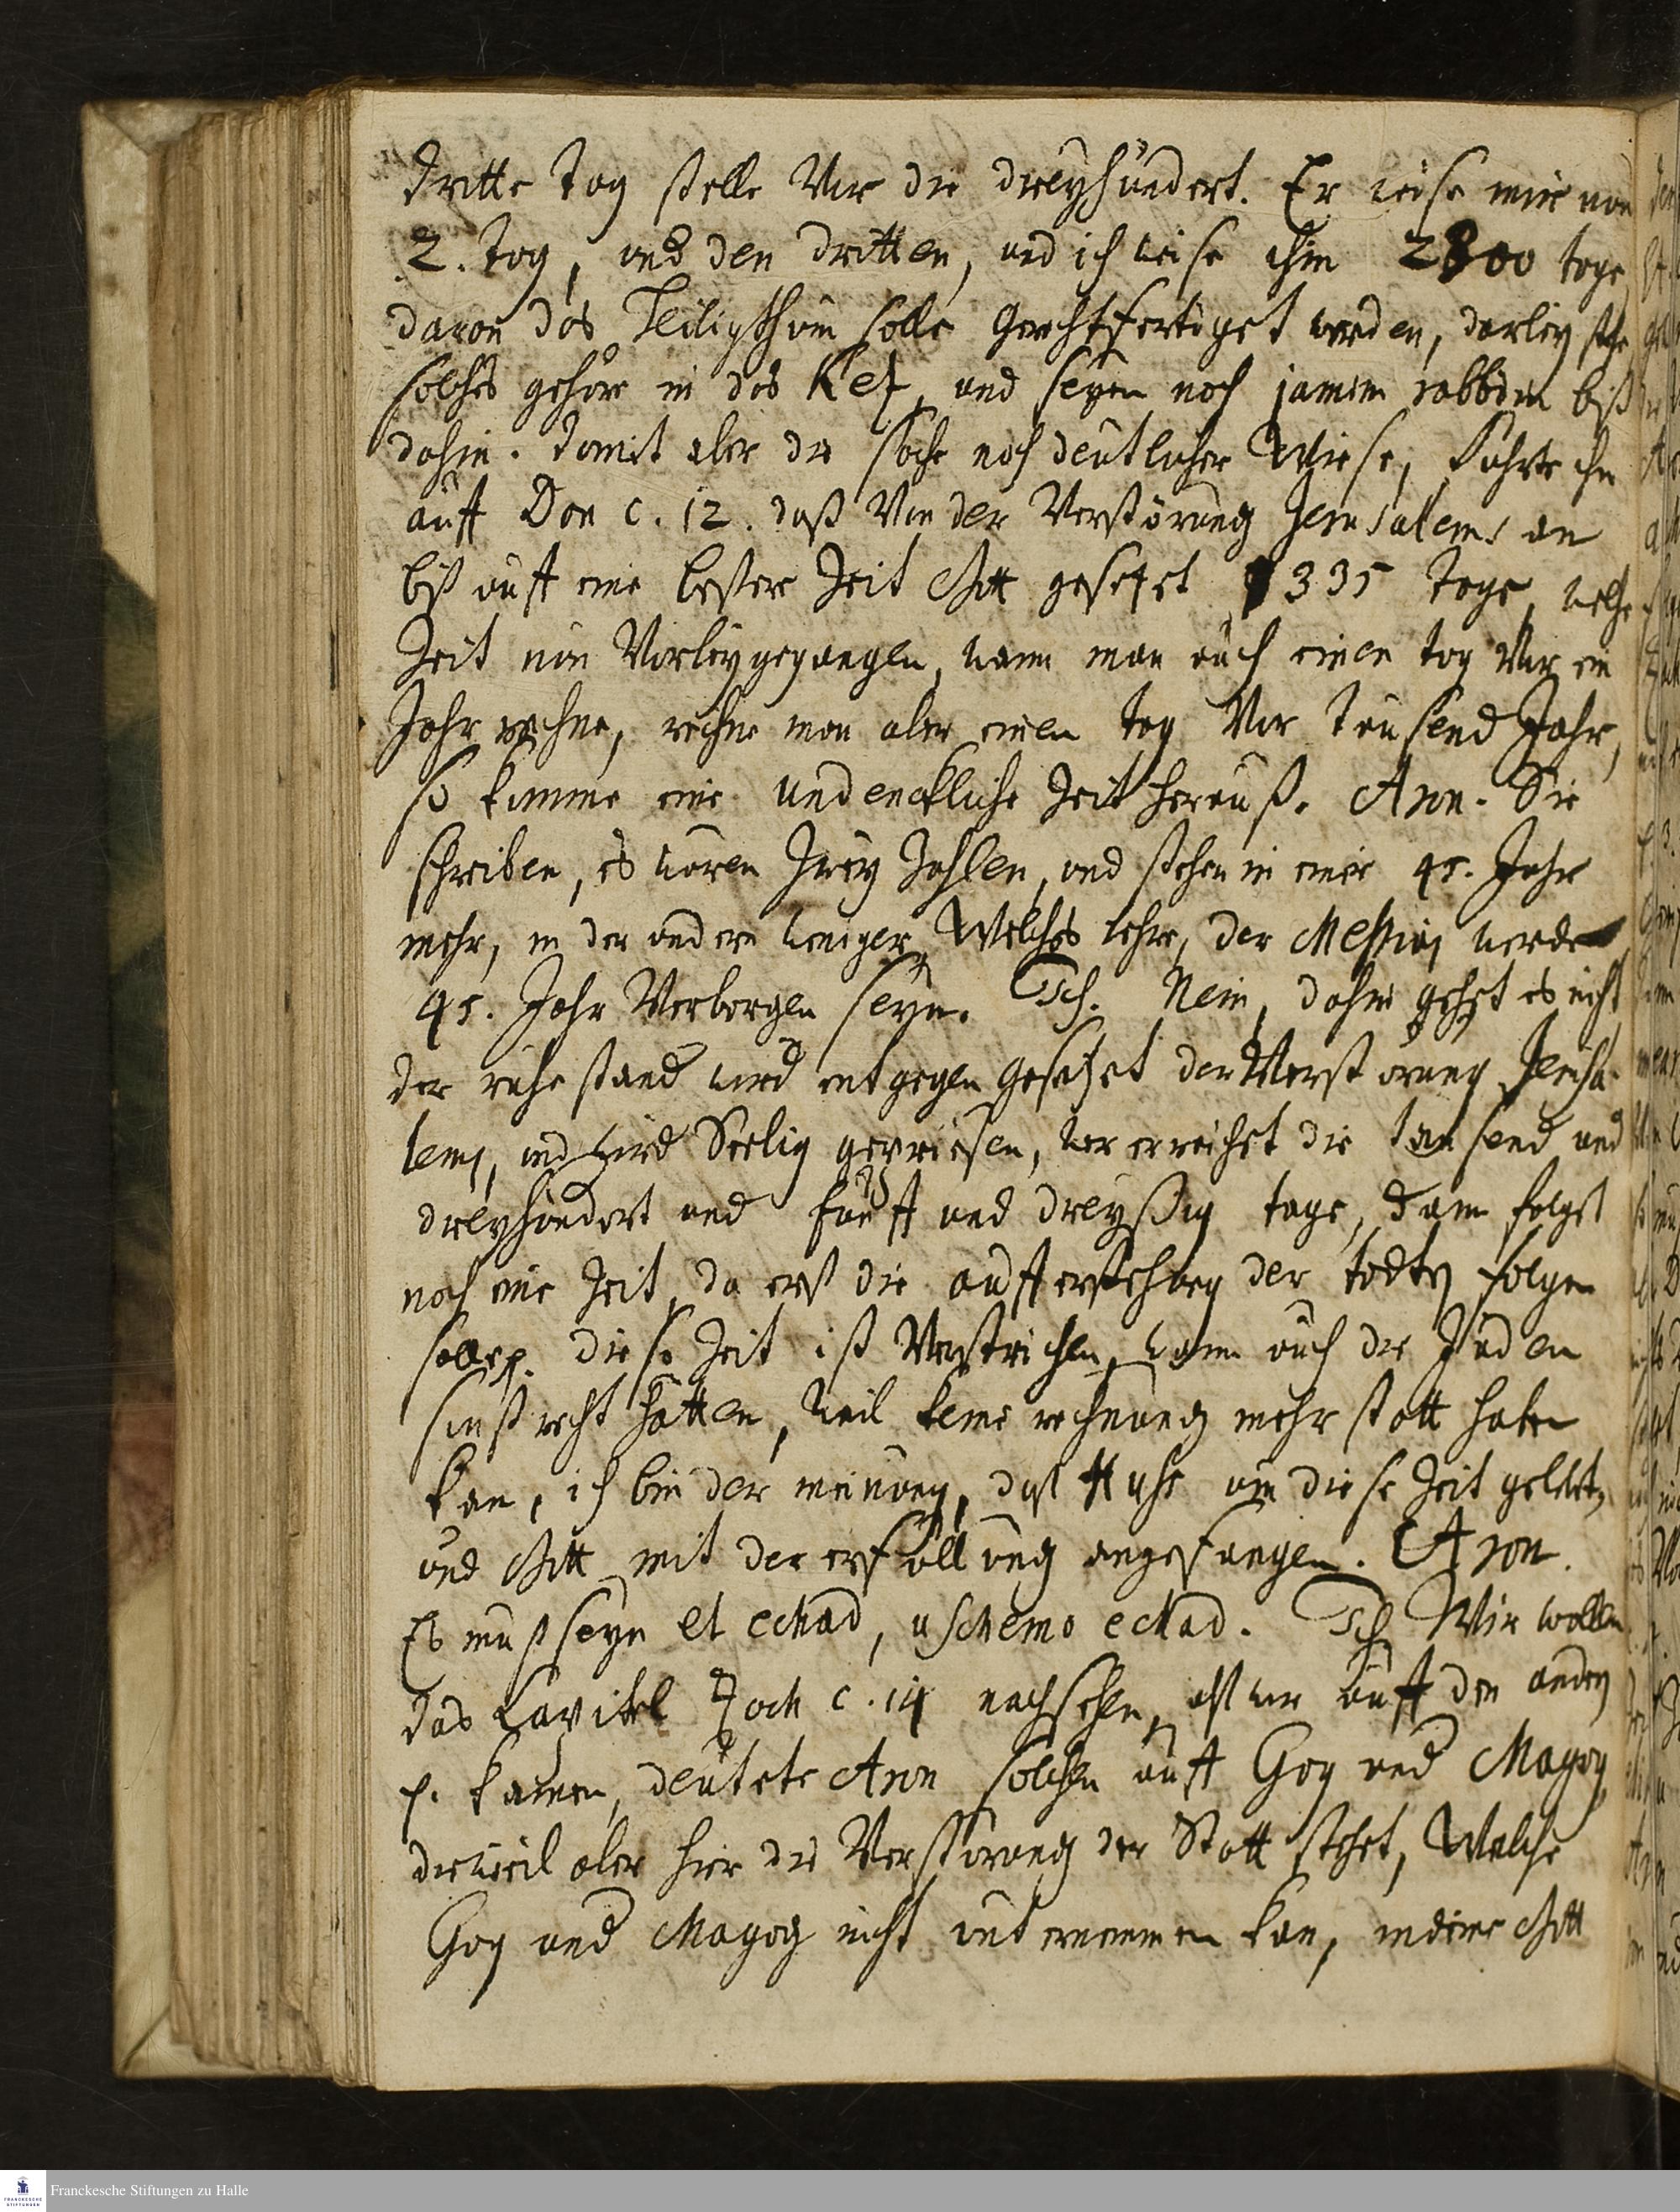 dritte tag stelle Vor die dreyhundert. Er weise mir nun
2. tag, und den dritten, und ich weise ihm 2800 tage
davon das Heiligthum solle Gerechtfertiget werden, darbey stehe
solches gehöre in das Kez, und seyen noch jamim rabbim biß
dahin. Damit aber die sache noch deutlicher Wiese, führte ihn
auff Dan c. 12. daß Von der Verstörung Jerusalems an
biß auff eine bessere Zeit Gott gesetzet 1335 tage, welche
Zeit nun Vorbeygegangen, wann man auch einen tag Vor ein
Jahr rechne, rechne man aber einen tag Vor Tausend Jahr,
so komme eine undenckliche Zeit herauß. Aron. Sie
schreiben, es wären Zwey Zahlen, und stehen in einer 45. Jahr
mehr, in der andern weniger, Welches lehre, der Messias werde
45. Jahr Verborgen seyn. Sch. Nein, dahin gehet es nicht
der ruhe stand wird entgegen gesetzet der Verstörung Jerusa-
lems, und wird Seelig gepriesen, wer erreichet die tausend und
dreyhundert und fünff und dreyßig tage, dann folget
noch eine Zeit, da erst die aufferstehung der todten folgen
solle. diese Zeit ist Verstrichen, wann auch die Juden
sonst recht hätten, weil keine rechnung mehr statt haben
kan, ich bin der meinung, daß Huss um diese Zeit gelebet,
und Gott mit der erfüllung angefangen. Aron.
Es muß seyn el echad, uschemo echad. Sch Wir wollen
das Capitel Zach c. 14 nachsehen, alß wir auff den andern
v. kamen, deutete Aron solchen auff Gog und Magog,
dieweil aber hier die Verstörung der Statt stehet, Welche
Gog und Magog nicht unternemmen kan, indeme Gott
Franckesche Stiftungen zu Halle